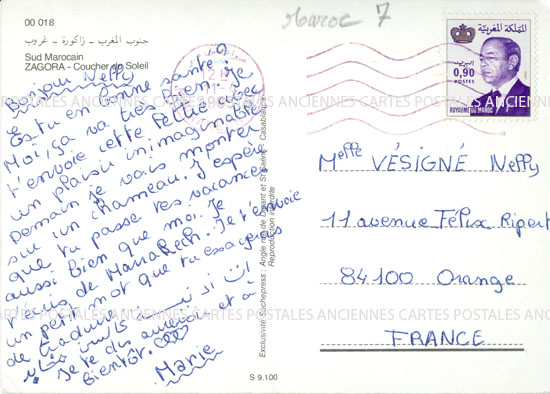 Maroc 7
00 018
جنوب المغرب - زاكورة - غروب
Sud Marocain
ZAGORA - Coucher de Soleil
Bonjour Nelly
Es-tu en bonne santé ?
Moi, ça va très bien. Je
t'envoie cette petite avec
un plaisir inimaginable
Demain je vais monter
sur un chameau. J'espère
que tu passe tes vacances
aussi bien que moi. Je
t'écris de Marrakech. Je t'envoie
un petit mot que tu essayes
de traduire
Je te dis au revoir et à
bientôt.
Marie
Exclusivité Suchepress : Angle rue de
Reproduction interdite
S 9.100
المملكة المغربية
البريد
0,90
POSTES
ROYAUME DU MAROC
Melle VÉSIGNÉ Nelly
11 avenue Félix Ripert
84100 Orange
FRANCE
CARTES POSTALES ANCIENNES CARTES POSTALES ANCIENNES
CARTES POSTALES ANCIENNES CARTES POSTALES ANCIENNES